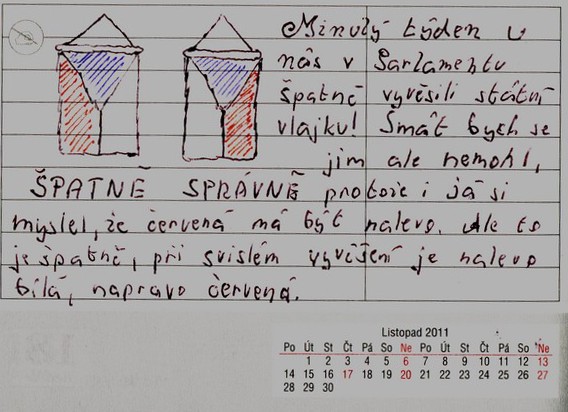 Minulý týden u
nás v Parlamentu
špatně vyvěsili státní
vlajku! Smát bych se
jim ale nemohl,
ŠPATNĚ SPRÁVNĚ protože i já si
myslel, že červená má být nalevo. Ale to
je špatně, při svislém vyvěšení je nalevo
bílá, napravo červená.
Listopad 2011
Po Út St Čt Pá So Ne Po Út St Čt Pá So Ne
1 2 3 4 5 6 7 8 9 10 11 12 13
14 15 16 17 18 19 20 21 22 23 24 25 26 27
28 29 30